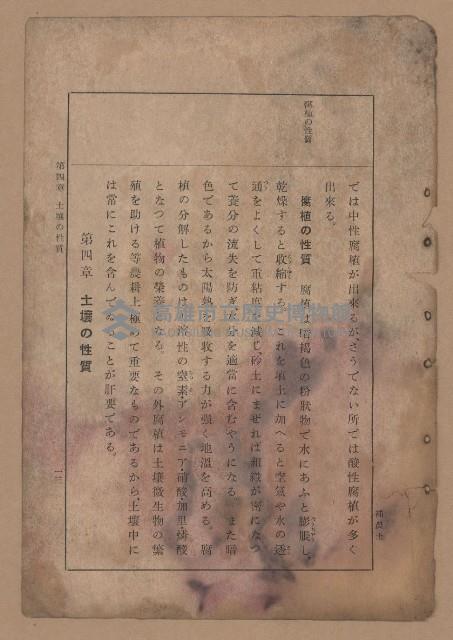 腐植の性質
では中性腐植が出來るがさうでない所では酸性腐植が多く
出來る。
腐植の性質 腐植は暗褐色の粉狀物で水にあふと膨脹し、
乾燥すると收縮する。これを埴土に加へると空氣や水の透
通をよくして重粘度を減じ、砂土にまぜれば組織が密になつ
て養分の流失を防ぎ水分を適當に含むやうになる。また暗
色であるから太陽熱を吸收する力が强く地溫を高める。腐
植の分解したものは、溶性の窒素アンモニア・硝酸・加里・燐酸
となつて植物の榮養になる。その外腐植は土壤微生物の繁
殖を助ける等農耕上極めて重要なものであるから、土壤中に
は常にこれを含んでゐることが肝要である。
第四章 土壤の性質
第四章 土壤の性質
高雄市立歷史博物館